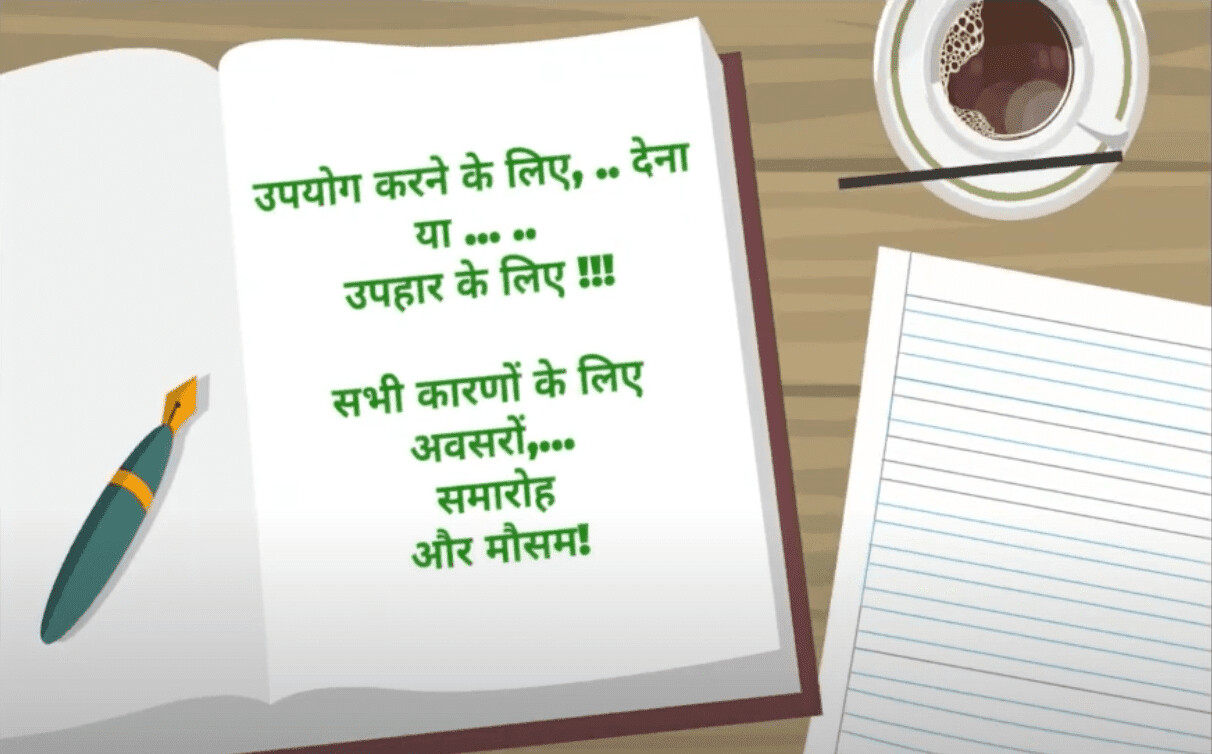 उपयोग करने के लिए, .. देना
या ... ..
उपहार के लिए !!!
सभी कारणों के लिए
अवसरों,...
समारोह
और मौसम!